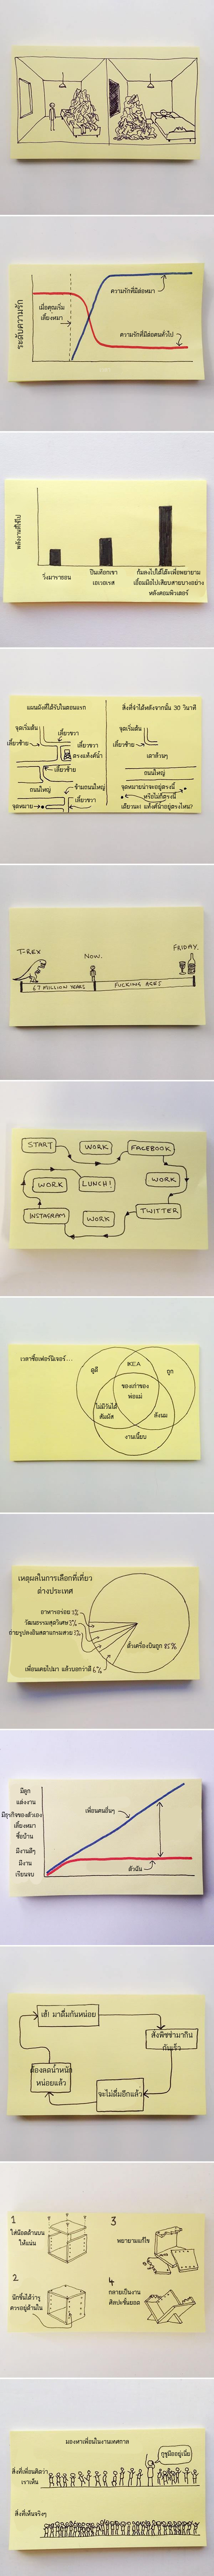 ระดับความรัก
เมื่อคุณเริ่ม
เลี้ยงหมา
ความรักที่มีต่อหมา
ความรักที่มีต่อคนทั่วไป
พลังงานที่ใช้ไป
วิ่งมาราธอน
ปีนเทือกเขา
เอเวอเรส
ก้มลงไปใต้โต๊ะเพื่อพยายาม
เอื้อมมือไปเสียบสายบางอย่าง
หลังคอมพิวเตอร์
แผนผังที่ได้รับในตอนแรก
จุดเริ่มต้น
เลี้ยวขวา
เลี้ยวซ้าย
เลี้ยวขวา
ตรงแท้งค์น้ำ
เลี้ยวซ้าย
ถนนใหญ่
ข้ามถนนใหญ่
จุดหมาย
เลี้ยวขวา
สิ่งที่จำได้หลังจากนั้น 30 วินาที
จุดเริ่มต้น
เลี้ยวซ้าย
เดาล้วนๆ
ถนนใหญ่
จุดหมายน่าจะอยู่ตรงนี้
หรือไม่ก็ตรงนี้
เดี๋ยวนะ! แท้งค์น้ำอยู่ตรงไหน?
T-REX
NOW.
FRIDAY.
67 MILLION YEARS
FUCKING AGES
START
WORK
FACEBOOK
WORK
LUNCH!
WORK
INSTAGRAM
WORK
TWITTER
เวลาซื้อเฟอร์นิเจอร์...
IKEA
ดูดี
ถูก
ของเก่าของ
พ่อแม่
ไม่มีวันได้
สัมผัส
งานเนี้ยบ
เหตุผลในการเลือกที่เที่ยว
ต่างประเทศ
อาหารอร่อย 1%
วัฒนธรรมสุดวิเศษ 3%
ถ่ายรูปลงอินสตาแกรมสวย 5%
เพื่อนเคยไปมา แล้วบอกว่าดี 6%
ตั๋วเครื่องบินถูก 85%
มีลูก
แต่งงาน
มีธุรกิจของตัวเอง
เลี้ยงหมา
ซื้อบ้าน
มีงานดีๆ
มีงาน
เรียนจบ
เพื่อนคนอื่นๆ
ตัวฉัน
เฮ้! มาดื่มกันหน่อย
สั่งพิซซ่ามากิน
กันเร็ว
จะไม่ดื่มอีกแล้ว
ต้องลดน้ำหนัก
หน่อยแล้ว
1
ใส่น็อตด้านบน
ให้แน่น
2
นึกขึ้นได้ว่ารู
ควรอยู่ด้านใน
3
พยายามแก้ไข
4
กลายเป็นงาน
ศิลปะชั้นยอด
มองหาเพื่อนในงานเทศกาล
กูชูมืออยู่เนี่ย
สิ่งที่เพื่อนคิดว่า
เราเห็น
สิ่งที่เห็นจริงๆ